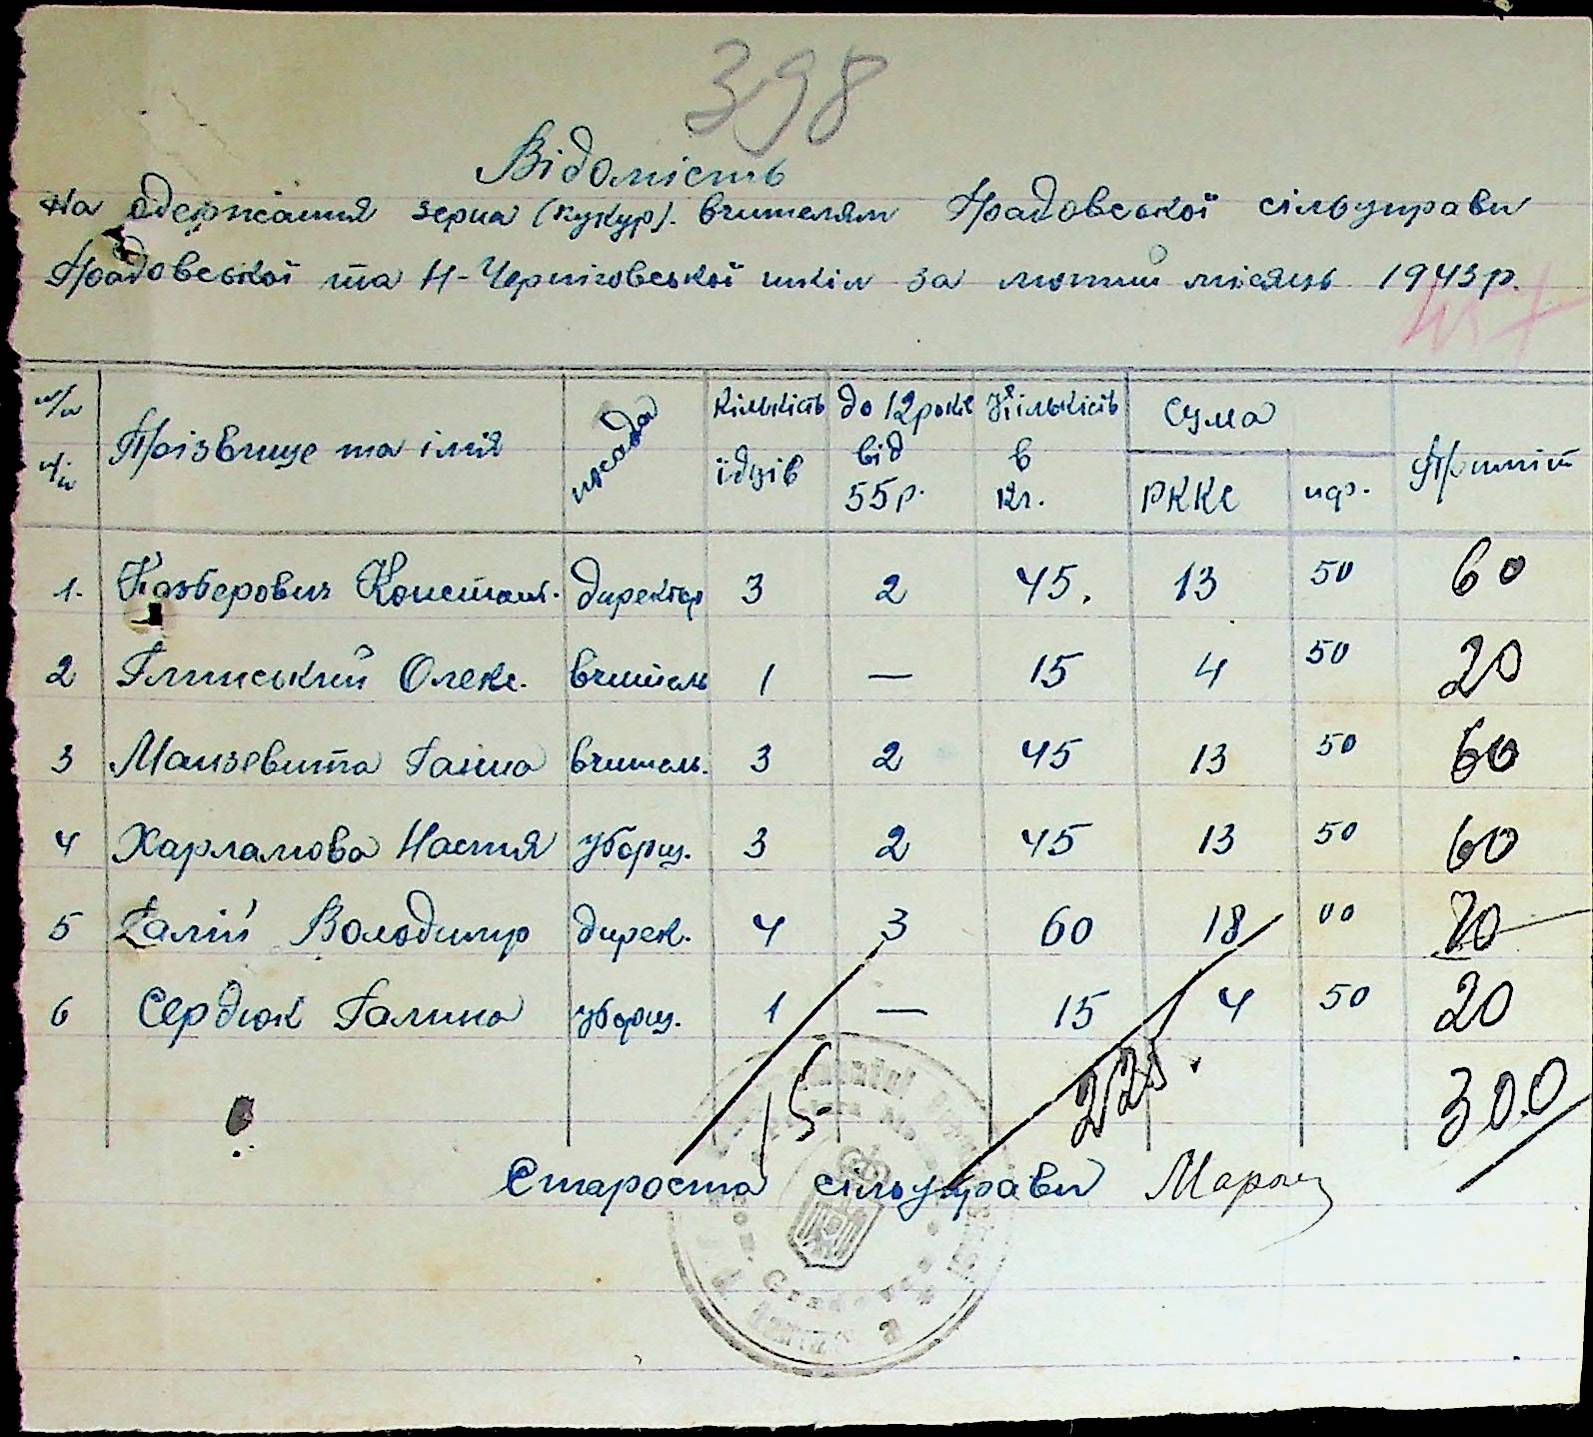 398
Відомість
На одержання зерна (кукур). вчителям Градовської сільуправи
Градовської та Н-Чернiговської шкіл за лютий місяць 1943р.
Прізвище та імя посада Кількість їдців до 12 років від 55р. Кількість в Кг. Сума РККС пф. Приміт
1. Константин. директор 3 2 45. 13 50 60
2 Глинський Олекс. вчитель 1 — 15 4 50 20
3 Ганна вчитель. 3 2 45 13 50 60
4 Харламова Настя уборщ. 3 2 45 13 50 60
5 Галій Володимир дирек. 4 3 60 18 00
6 Сердюк Галина уборщ. 1 — 15 4 50 20
15. 225. 300
Староста сільуправи